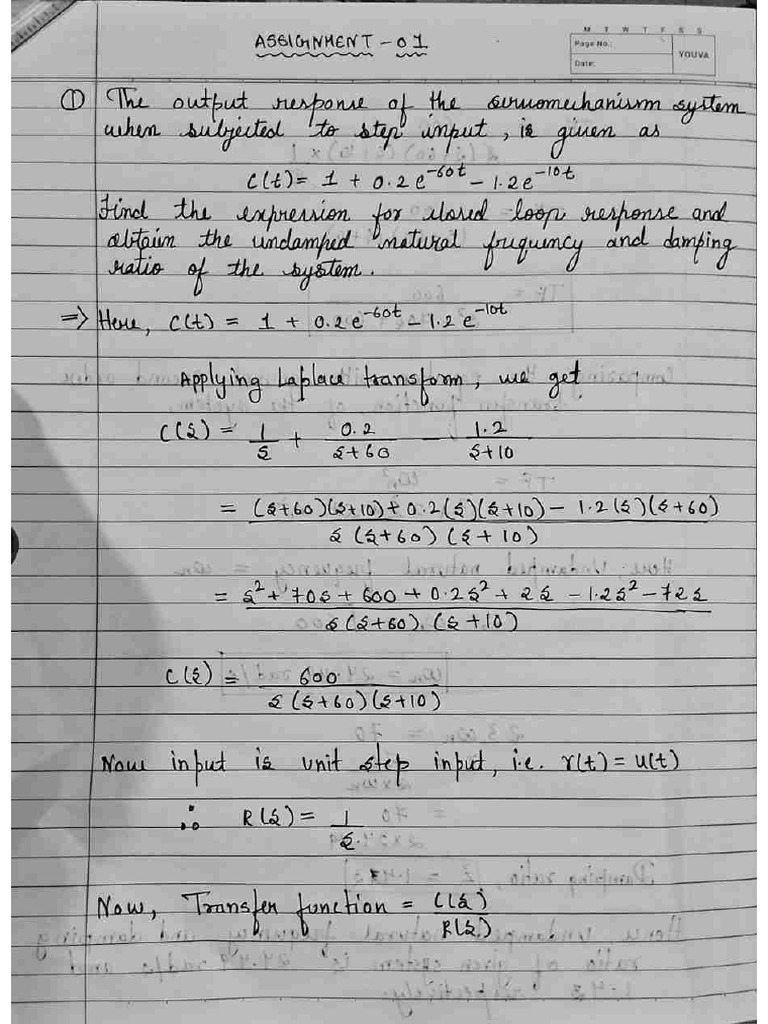 ASSIGNMENT - 01
M T W T F S S
Page No.:
Date:
YOUVA
① The output response of the servomechanism system
when subjected to step input, is given as
C(t) = 1 + 0.2e^-60t - 1.2e^-10t
Find the expression for closed loop response and
obtain the undamped natural frequency and damping
ratio of the system.
=> Here, C(t) = 1 + 0.2e^-60t - 1.2e^-10t
Applying Laplace transform, we get
C(s) = 1/s + 0.2/(s+60) - 1.2/(s+10)
= ((s+60)(s+10) + 0.2(s)(s+10) - 1.2(s)(s+60))/(s(s+60)(s+10))
= (s^2 + 70s + 600 + 0.2s^2 + 2s - 1.2s^2 - 72s)/(s(s+60).(s+10))
C(s) = 600/(s(s+60)(s+10))
Now input is unit step input, i.e. r(t) = u(t)
∴ R(s) = 1/s.
Now, Transfer function = C(s)/R(s)